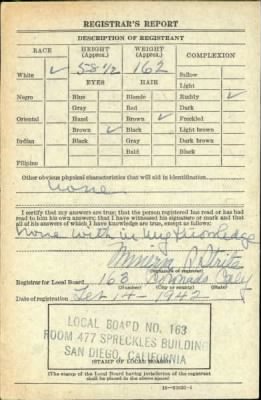 REGISTRAR'S REPORT
DESCRIPTION OF REGISTRANT
RACE HEIGHT (Approx.) WEIGHT (Approx.) COMPLEXION
White ✓ 5 8 1/2 162 Sallow
EYES HAIR Light
Negro Blue Blonde Ruddy ✓
Gray Red Dark
Oriental Hazel Brown ✓ Freckled
Brown ✓ Black Light brown
Indian Black Gray Dark brown
Bald Black
Filipino
Other obvious physical characteristics that will aid in identification
None
I certify that my answers are true; that the person registered has read or has had
read to him his own answers; that I have witnessed his signature or mark and that
all of his answers of which I have knowledge are true, except as follows:
None with in my knowledge
(Signature of registrar)
Registrar for Local Board 163 Coronado Calif
(Number) (City or county) (State)
Date of registration Feb 14 - 1942
LOCAL BOARD NO. 163
ROOM 477 SPRECKLES BUILDING
SAN DIEGO, CALIFORNIA
(STAMP OF LOCAL BOARD)
(The stamp of the Local Board having jurisdiction of the registrant
shall be placed in the above space)